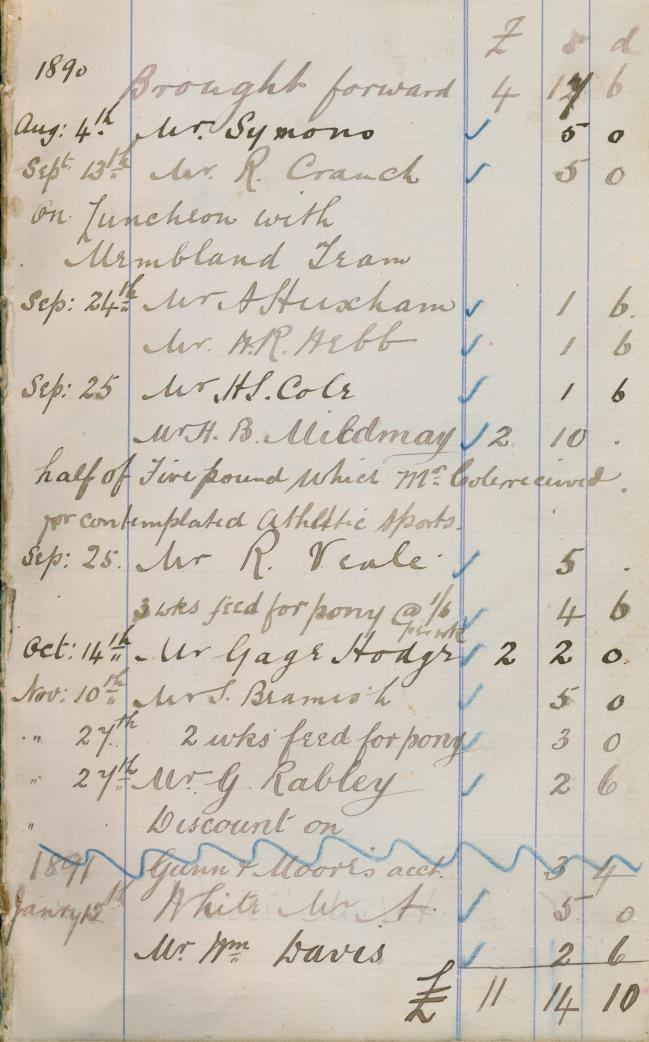 £ s d
1890 Brought forward 4 17 6
Aug: 4th Mr. Symons 5 0
Sept. 13th Mr. R. Cranch 5 0
on Luncheon with
Membland Team
Sep: 24th Mr A Huxham 1 6.
Mr. W.R. Webb 1 6
Sep: 25 Mr H S. Cole 1 6
Mr H. B. Mildmay 2 10 .
half of Five pound which Mr Cole received.
for contemplated Athletic Sports.
Sep: 25. Mr R. Veale. 5 .
3 wks feed for pony @ 1/6 4 6
per wk
Oct: 14th Mr Gage Hodge 2 2 0.
Nov: 10th Mr S. Beamish 5 0
" 27th 2 wks feed for pony 3 0
" 27th Mr. G Rabley 2 6
" Discount on
1891 Gunn & Moore's acct. 3 4
Janry 13th White Mr A. 5 0
Mr. Wm Davis 2 6
£ 11 14 10